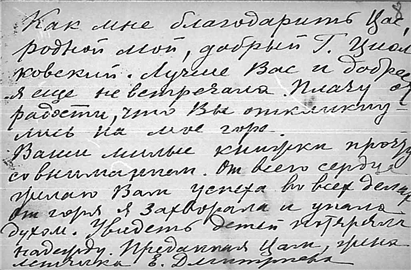 Какъ мне благодарить Вас,
родной мой, добрый Г. Циол
ковский. Лучше Вас и добрее
я еще не встречала. Плачу от
радости, что Вы откликну
лись на мое горе.
Ваши милые книжки прочту
со вниманием. От всего сердца
желаю Вам успеха во всех делах
От горя я захворала и упала
духом. Увидеть детей потеряла
надежду. Преданная Вам,
Е. Дмитриева